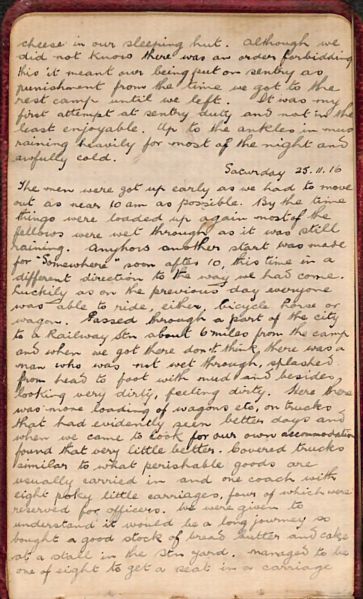 cheese in our sleeping hut. Although we
did not know there was an order forbidding
this it meant our being put on sentry as
punishment from the time we got to the
rest camp until we left. It was my
first attempt at sentry duty and not in the
least enjoyable. Up to the ankles in mud
raining heavily for most of the night and
awfully cold.
Saturday 25.11.16
The men were got up early as we had to move
out as near 10 am as possible. By the time
things were loaded up again most of the
fellows were wet through as it was still
raining. Anyhow another start was made
for "Somewhere" soon after 10, this time in a
different direction to the way we had come.
Luckily as on the previous day everyone
was able to ride, either, bicycle horse or
wagon. Passed through a part of the city
to a Railway Stn about 6 miles from the camp
and when we got there don't think there was a
man who was not wet through, splashed
from head to foot with mud and besides
looking very dirty, feeling dirty. Here there
was more loading of wagons etc, on trucks
that had evidently seen better days and
when we came to look for our own accommodation
found that very little better. Covered trucks
similar to what perishable goods are
usually carried in and one coach with
eight poky little carriages, four of which were
reserved for officers. We were given to
understand it would be a long journey so
bought a good stock of bread butter and cake
at a stall in the Stn yard. Managed to be
one of eight to get a seat in a carriage